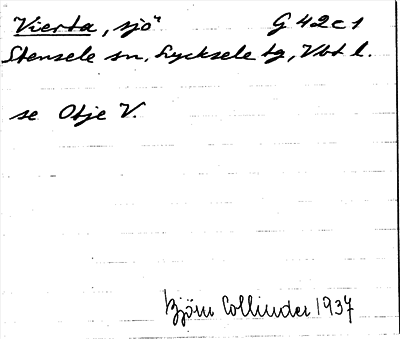 Vierta, sjö G 42 c 1
Stensele sn, Lycksele tg, Vbt l.
se Otje V.
Björn Collinder 1937